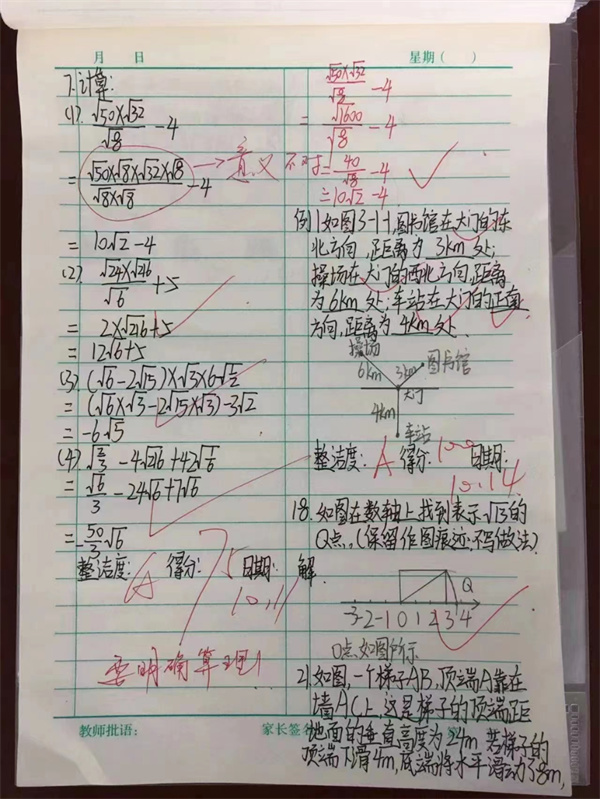 月 日
星期( )
7.计算:
(1). √50×√32/√8 -4
= √50×√8×√32×√8/√8×√8 -4
→意义不对
= 10√2-4
(2). √24×√216/√6 +5
= 2×√216+5
= 12√6+5
(3). (√6-2√15)×√3×6√½
= (√6×√3-2√15×√3)-3√2
= -6√5
(4). √⅔-4√216+42√⅙
= √6/3-24√6+7√6
= -50/3√6
整洁度: A 得分: 75 日期: 10.11
要明确算理!
√50×√32/√8 -4
= √1600/√8 -4
= 40/√8 -4
= 10√2-4
例1.如图3-1-1,图书馆在大门的东
北方向,距离为 3km 处;
操场在大门的西北方向,距离
为6km 处;车站在大门的正南
方向,距离为 4km处.
操场
图书馆
6km
3km
大门
4km
车站
整洁度: A 得分: 100 日期:
10.14
18.如图在数轴上找到表示√13的
Q点.(保留作图痕迹,不写做法)
解.
Q
-3 -2 -1 0 1 2 3 4
Q点如图所示
21.如图,一个梯子AB,顶端A靠在
墙AC上,这是梯子的顶端距
地面的垂直高度为24m,若梯子的
顶端下滑4m,底端将水平滑动了8m,
教师批语:
家长签